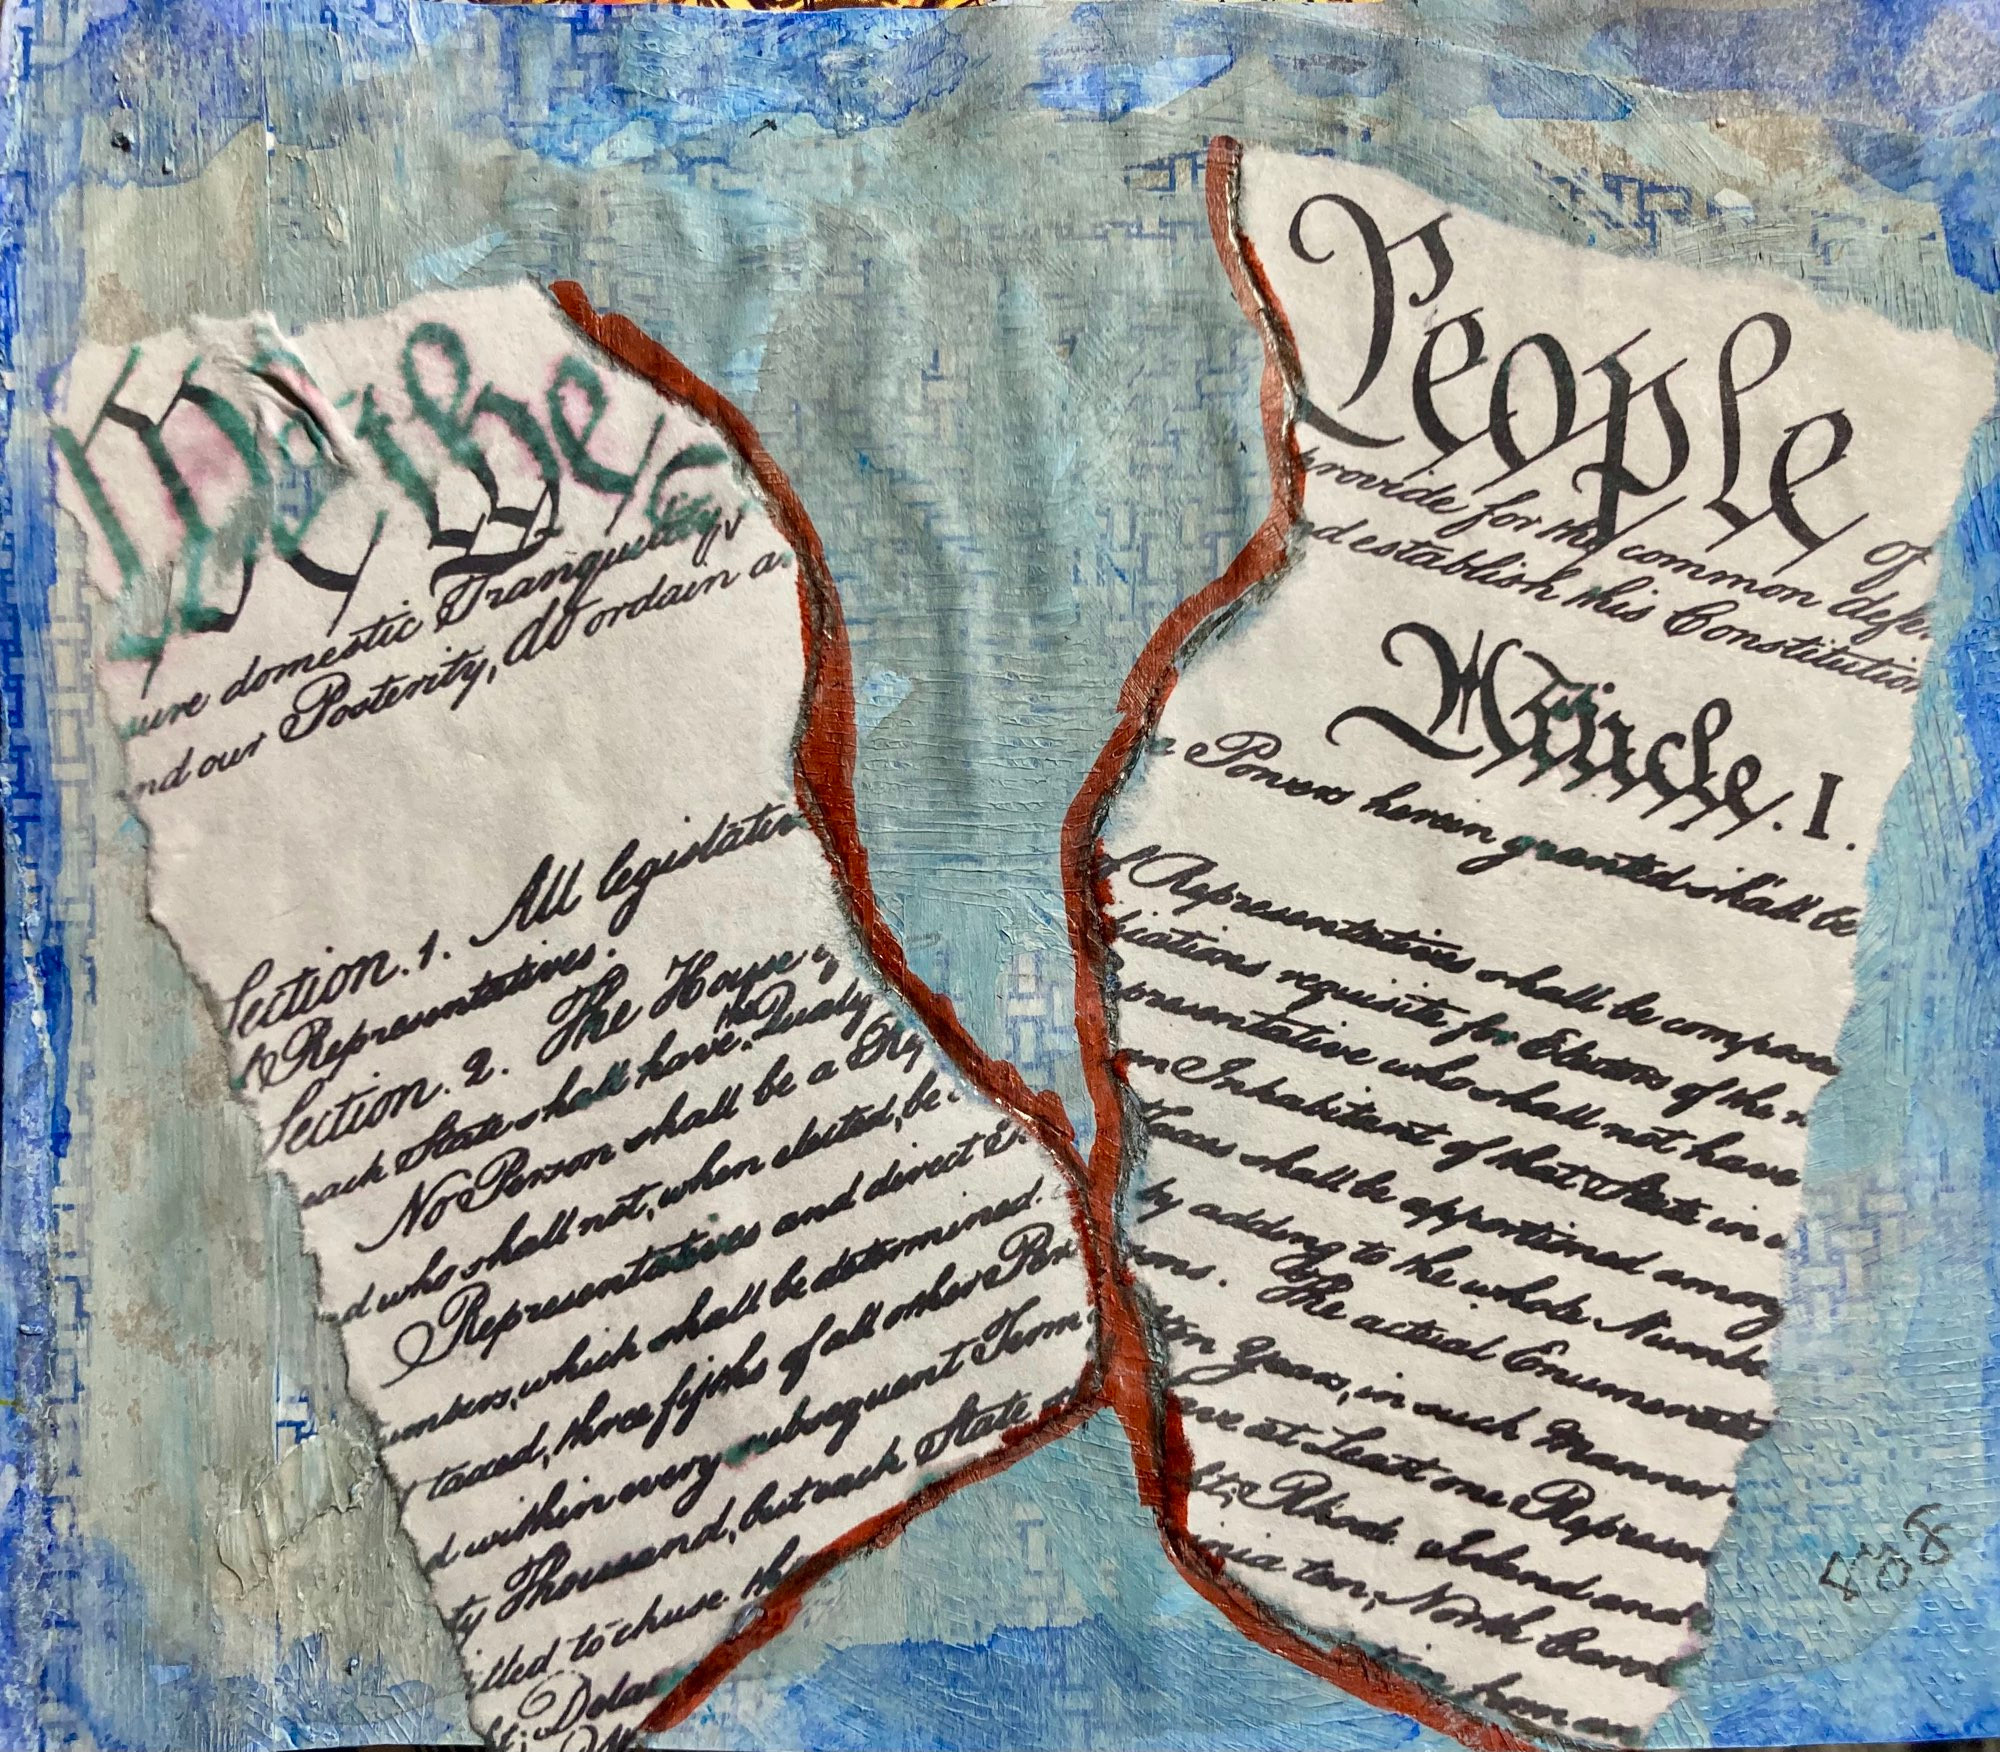 We the
sure domestic Tranquility,
and our Posterity, do ordain a
Section. 1. All legislativ
of Representatives.
Section. 2. The House o
each State shall have the Quali
No Person shall be a Re
nd who shall not, when elected, be
Representatives and direct
umbers, which shall be determined
taxed, three fifths of all other Per
d within every subsequent Term
ty Thousand, but each State
itled to chuse th
Delaw
People of
provide for the common defe
nd establish this Constitution
Article. I.
Powers herein granted shall be
f Representatives shall be compose
fications requisite for Electors of the
presentative who shall not have
an Inhabitant of that State in
Taxes shall be apportioned among
by adding to the whole Numbe
sons. The actual Enumerati
Ten Years, in such Manner
ave at Least one Represen
Rhode Island and
inia ten, North Caro
from an